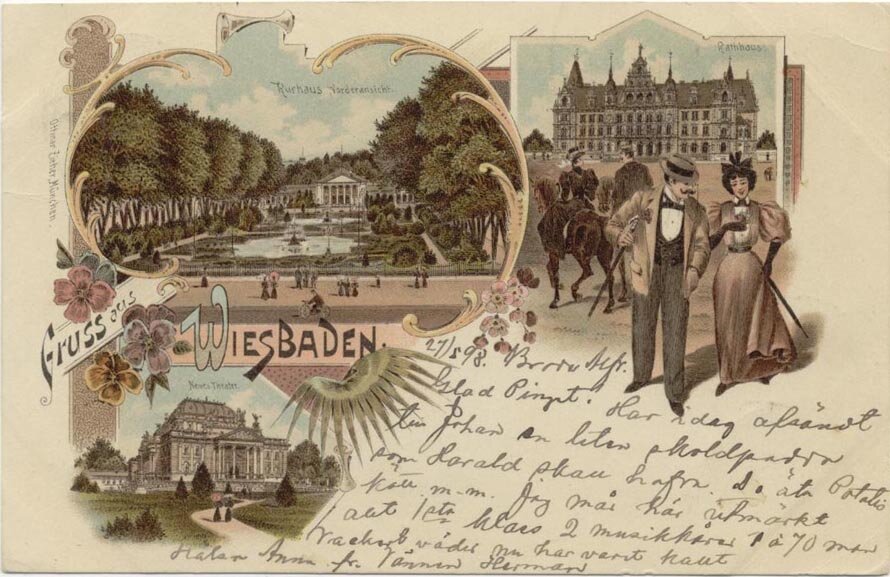 Kurhaus Vorderansicht.
Rathhaus.
Ottmar Zieher, München.
Gruss aus
Wiesbaden.
Neues Theater.
27/5 98. Broder Alfr.
Glad Pingst! Har i dag afsändt
till Johan en liten sköldpadda
som Harald skall hafva. De äta Potatis
kött m.m. Jag mår här utmärkt
allt 1sta klass 2 musikkårer 1 à 70 man
Vackert väder nu har varit kallt
Hälsa Anna fr. vännen Herman